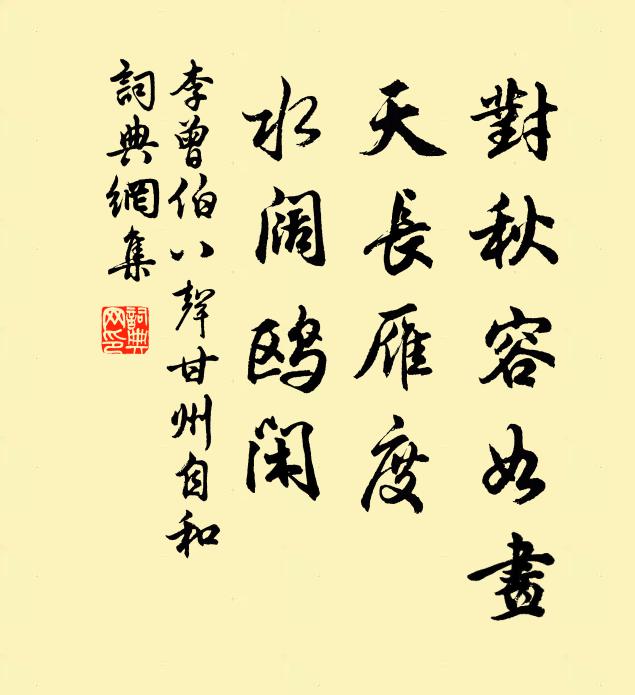 對秋容如畫
天長雁度
水阔鸥闲
李曾伯八聲甘州自和
詞典網集
詞典
网印